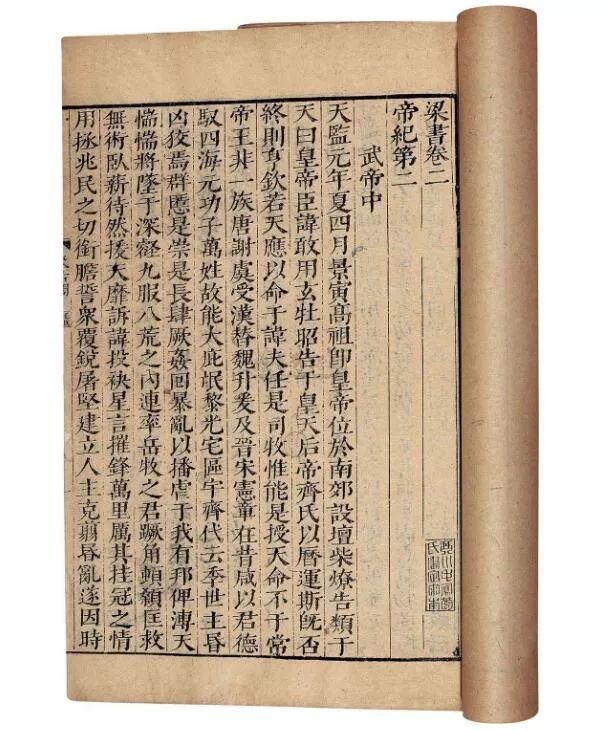 梁書卷二
帝紀第二
武帝中
天監元年夏四月景寅髙祖卽皇帝位於南郊設壇柴燎告類于
天曰皇帝臣諱敢用玄牡昭告于皇天后帝齊氏以曆運斯旣否
終則亨欽若天應以命于諱夫任是司牧惟能是授天命不于常
帝王非一族唐謝虞受漢替魏升爰及晉宋憲章在昔咸以君德
馭四海元功子萬姓故能大庇氓黎光宅區宇齊代云季世主昬
凶狡焉群慝是崇是長肆厥姦回暴亂以播虐于我有邦俾溥天
惴惴將墜于深壑九服八荒之內連率岳牧之君蹶角頓顙匡救
無術臥薪待然援天靡訴諱投袂星言摧鋒萬里厲其挂冠之情
用拯兆民之切銜膽誓衆覆銳屠堅建立人主克翦昬亂遂因時